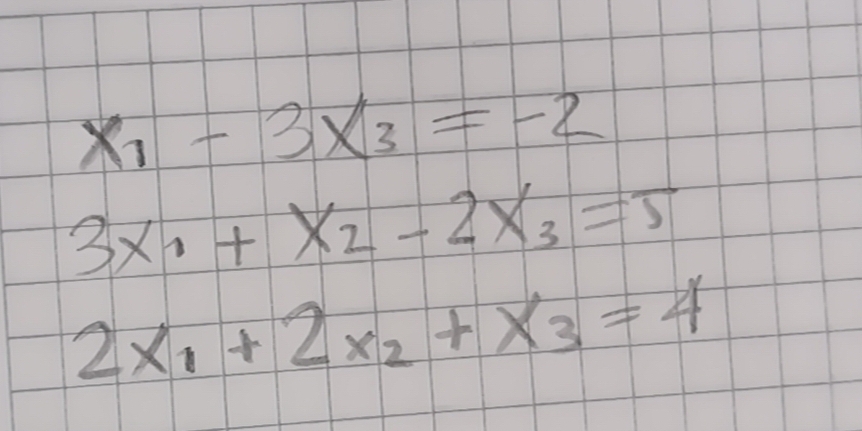 x₁ - 3x₃ = -2
3x₁ + x₂ - 2x₃ = 5
2x₁ + 2x₂ + x₃ = 4